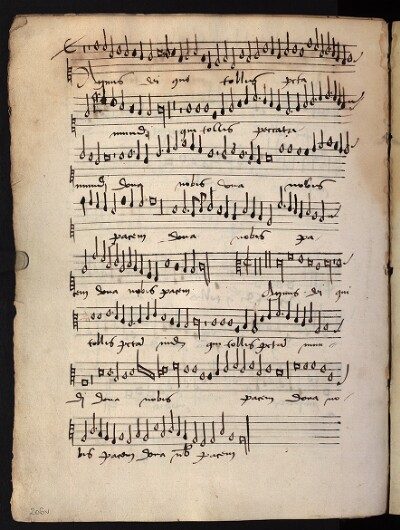 Agnus dei qui tollis peta
mundi qui tollis peccata
mundi dona nobis dona nobis
pacem dona nobis pa-
cem dona nobis pacem Agnus dei qui
tollis petam mundi qui tollis petam mun-
di dona nobis pacem dona no-
bis pacem dona nobis pacem